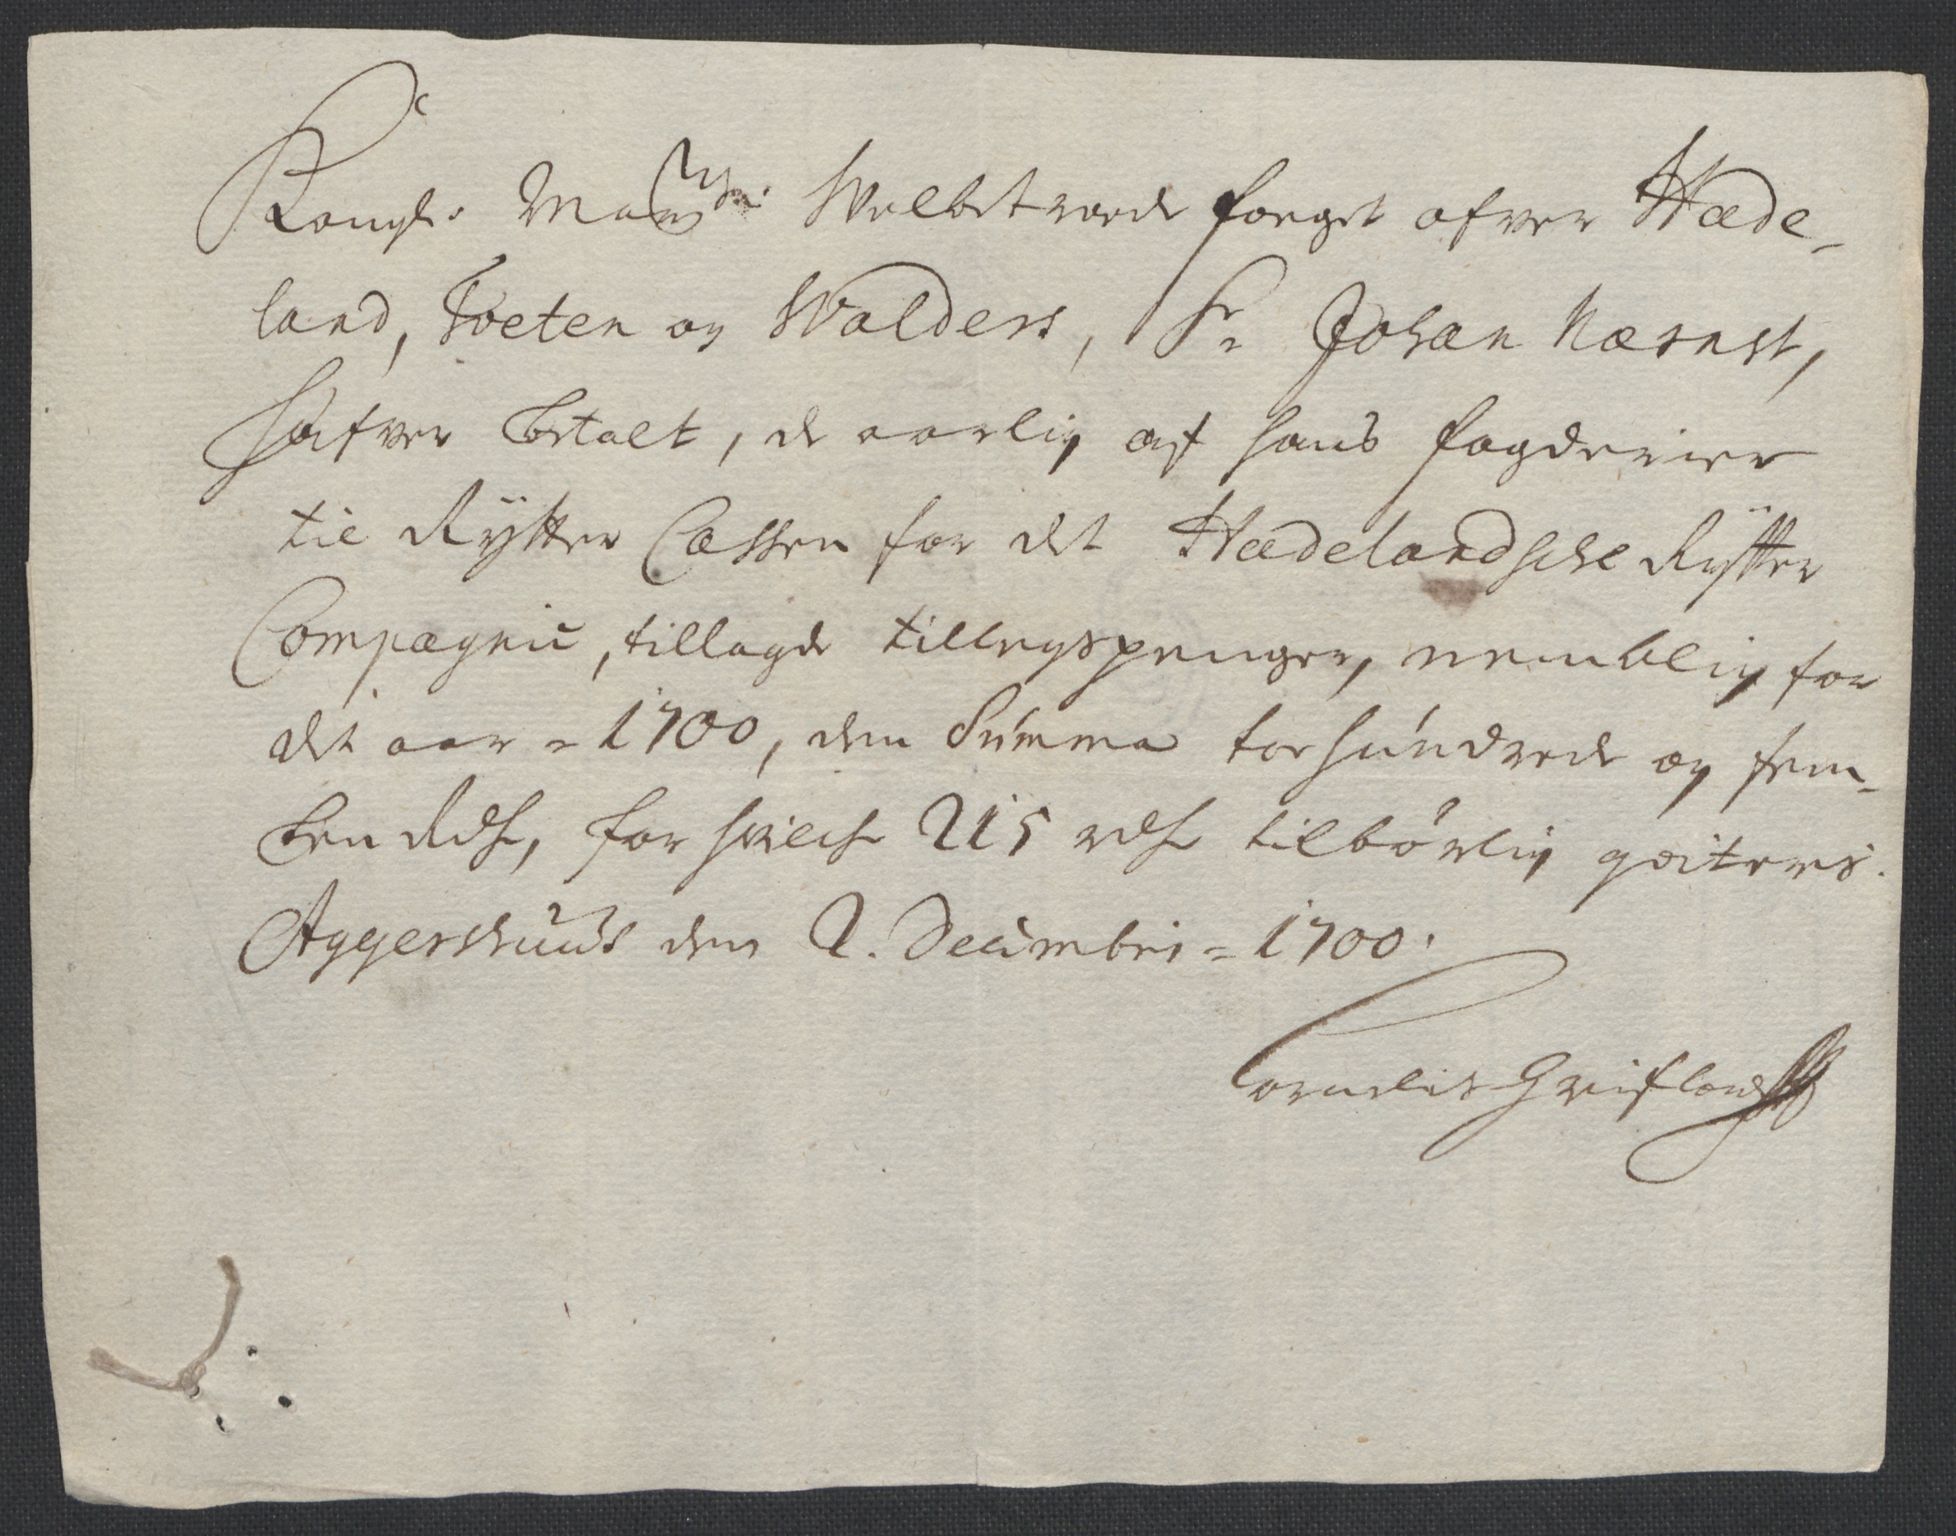 Kongl. Maysts: Welbetroede foeget ofver Hade-
land, Toeten og Walders, Sr. Johan Næsnst,
hafver betalt, de aarlig af hans fogderier
til Rytter Cassen for det Hadelandsche Rytter
Compagnie, tillagde tillegspenger, nemblig for
det aar = 1700, den Summa toehundrede og fem-
ten Rdr, for hvilche 215 rdr tilbørlig qviteres.
Aggershuus den 2. Decembris = 1700.
Cornelis Griflond